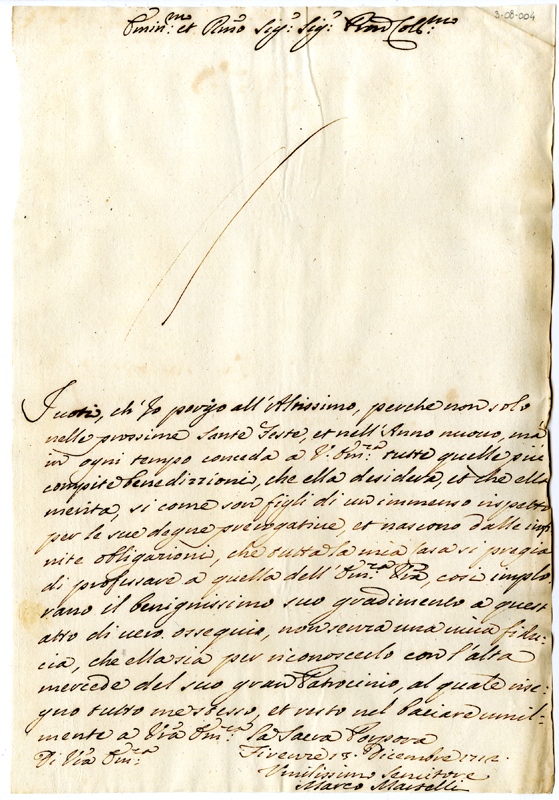 3-08-004
Emin:mo et Rmo Sig:r Sig:r Pron Coll:mo
I voti, ch'Io porgo all'Altissimo, perche non solo
nelle prossime Sante Feste, et nell'Anno nuovo, ma
in ogni tempo conceda a V: Em:za tutte quelle piu
compite benedizzioni, che ella desidera, et che ella
merita, si come son figli di un immenso rispetto
per le sue degne prerogative, et nascono dalle infi
nite obligazioni, che tutta la mia Casa si pregia
di professare a quella dell'Em:za Vra, cosi implo
rano il benignissimo suo gradimento a quest
atto di vero ossequio, non senza una viva fidu-
cia, che ella sia per riconoscerlo con l'alta
mercede del suo gran Patrocinio, al quale rase-
gno tutto me stesso, et resto nel baciare umil-
mente a Vra Em:za la Sacra Porpora
Di Vra Em:za Firenze 13. Dicembre 1712.
Umilissimo Servitore
Marco Martelli